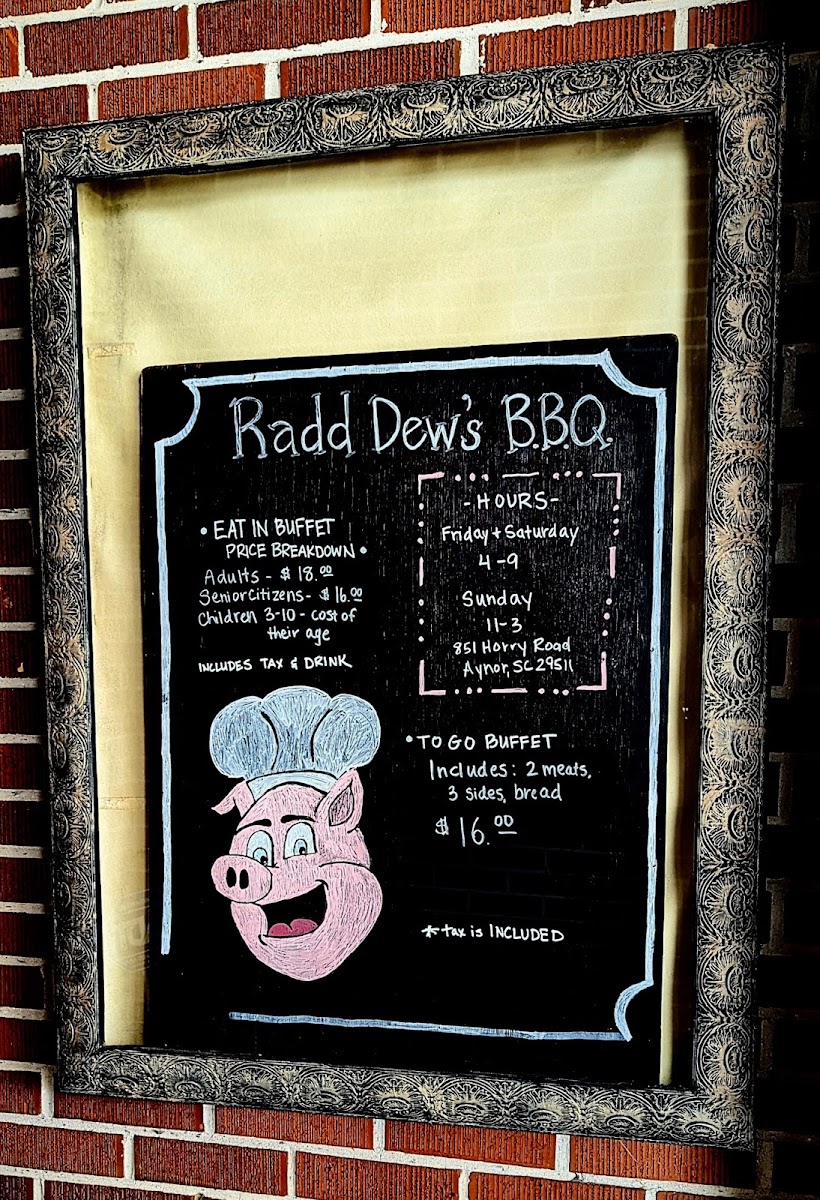 Radd Dew's B.B.Q.
• EAT IN BUFFET
PRICE BREAKDOWN •
Adults - $ 18.00
Senior Citizens - $ 16.00
Children 3-10 - cost of
their age
INCLUDES TAX & DRINK
- HOURS -
Friday + Saturday
4 - 9
Sunday
11 - 3
851 Horry Road
Aynor, SC 29511
• TO GO BUFFET
Includes: 2 meats,
3 sides, bread
$ 16.00
* tax is INCLUDED